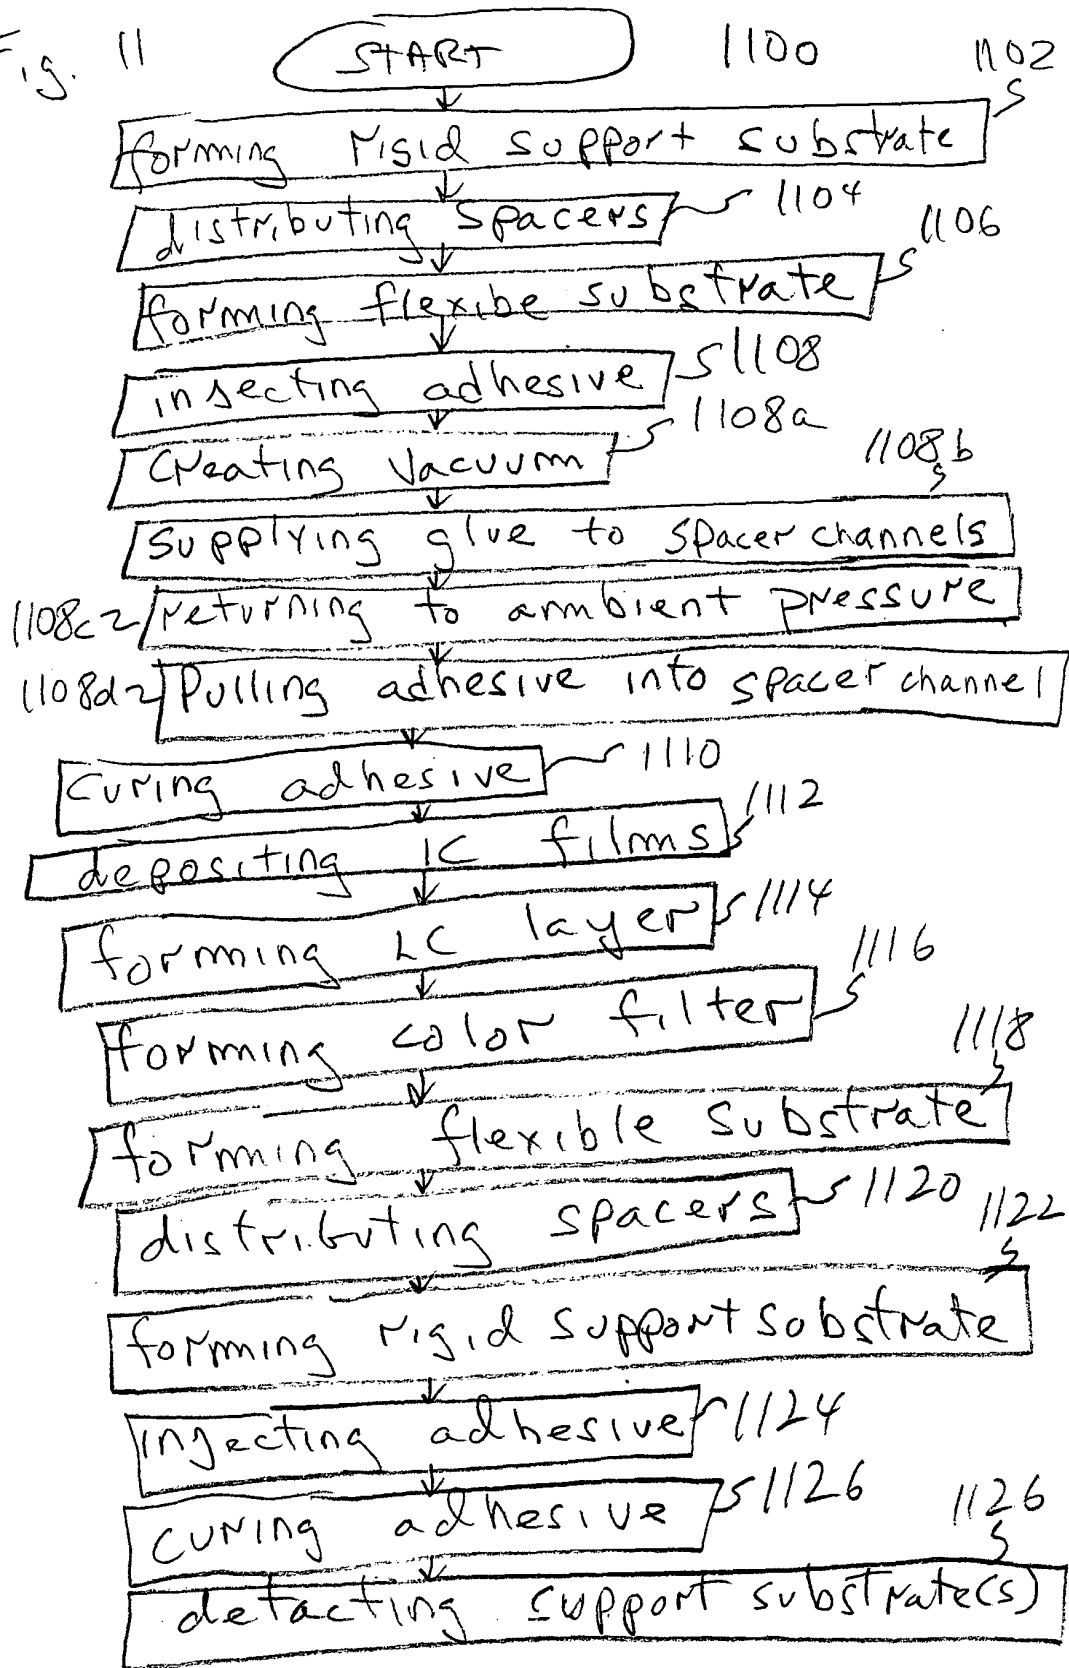 Fig. 11 START 1100 1102
forming rigid support substrate
distributing spacers 1104
1106
forming flexibe substrate
injecting adhesive 1108
creating vacuum 1108a
1108b
supplying glue to spacer channels
1108c returning to ambient pressure
1108d Pulling adhesive into spacer channel
curing adhesive 1110
depositing IC films 1112
forming LC layer 1114
forming color filter 1116
1118
forming flexible substrate
distributing spacers 1120
1122
forming rigid support substrate
injecting adhesive 1124
curing adhesive 1126
1126
detacting support substrate(s)